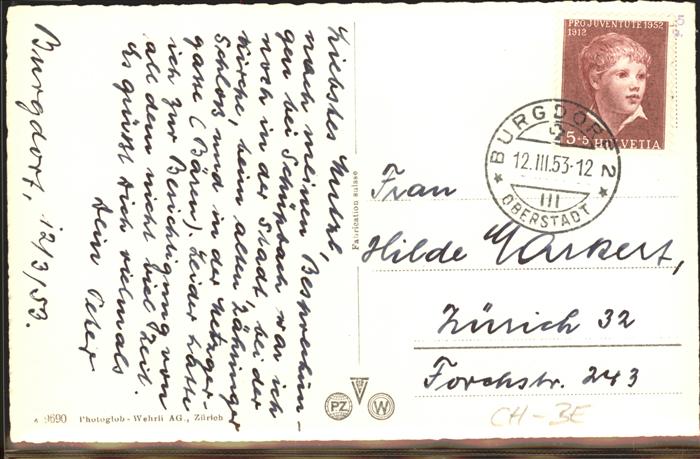 Burgdorf, 12/3/53.
Liebstes Mutzl,
nach meinen Besprechun-
gen bei Schüpbach war ich
noch in der Stadt, bei der
Kirche, beim alten Zähringer
Schloss und in der Metzger-
gasse (Bären). Leider hatte
ich zur Besichtigung von
all dem nicht viel Zeit.
Es grüßt Dich vielmals
Dein Peter
A 9690 Photoglob-Wehrli AG., Zürich
Fabrication suisse
PZ W
PRO JUVENTUTE 1952
1912
5+5 HELVETIA
BURGDORF 2
12.III.53-12
III
OBERSTADT
Frau
Hilde Markert,
Zürich 32
Forchstr. 243
CH-BE